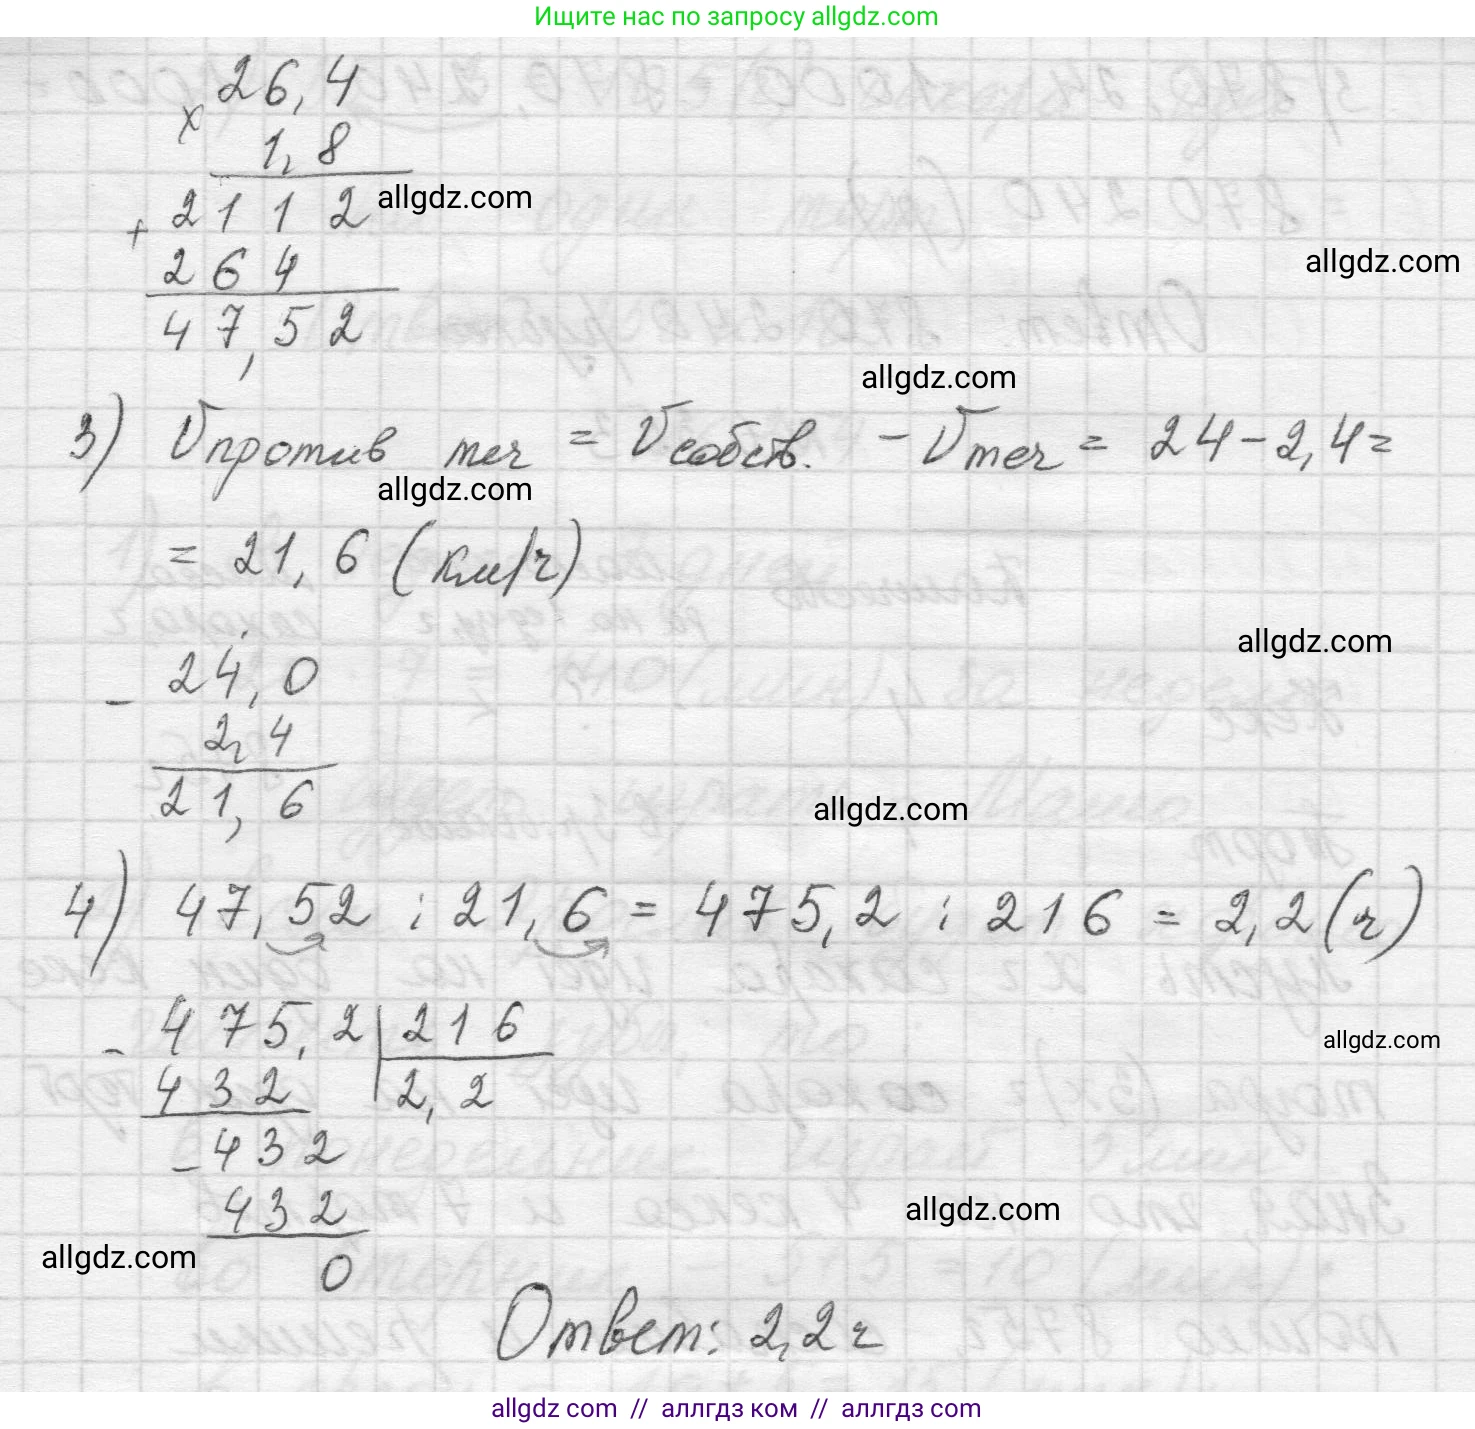 Ищите нас по запросу allgdz.com
26,4
x
1,8
2112 allgdz.com
+
264
allgdz.com
47,52
allgdz.com
3) Vпротив теч = Vсобств. - Vтеч = 24-2,4=
allgdz.com
= 21,6 (км/ч)
allgdz.com
24,0
-
2,4
21,6
allgdz.com
4) 47,52 : 21,6 = 475,2 : 216 = 2,2 (ч)
- 475,2 | 216
allgdz.com
432 2,2
- 432
432
allgdz.com
allgdz.com
0
Ответ: 2,2 ч
allgdz com // аллгдз ком // аллгдз com